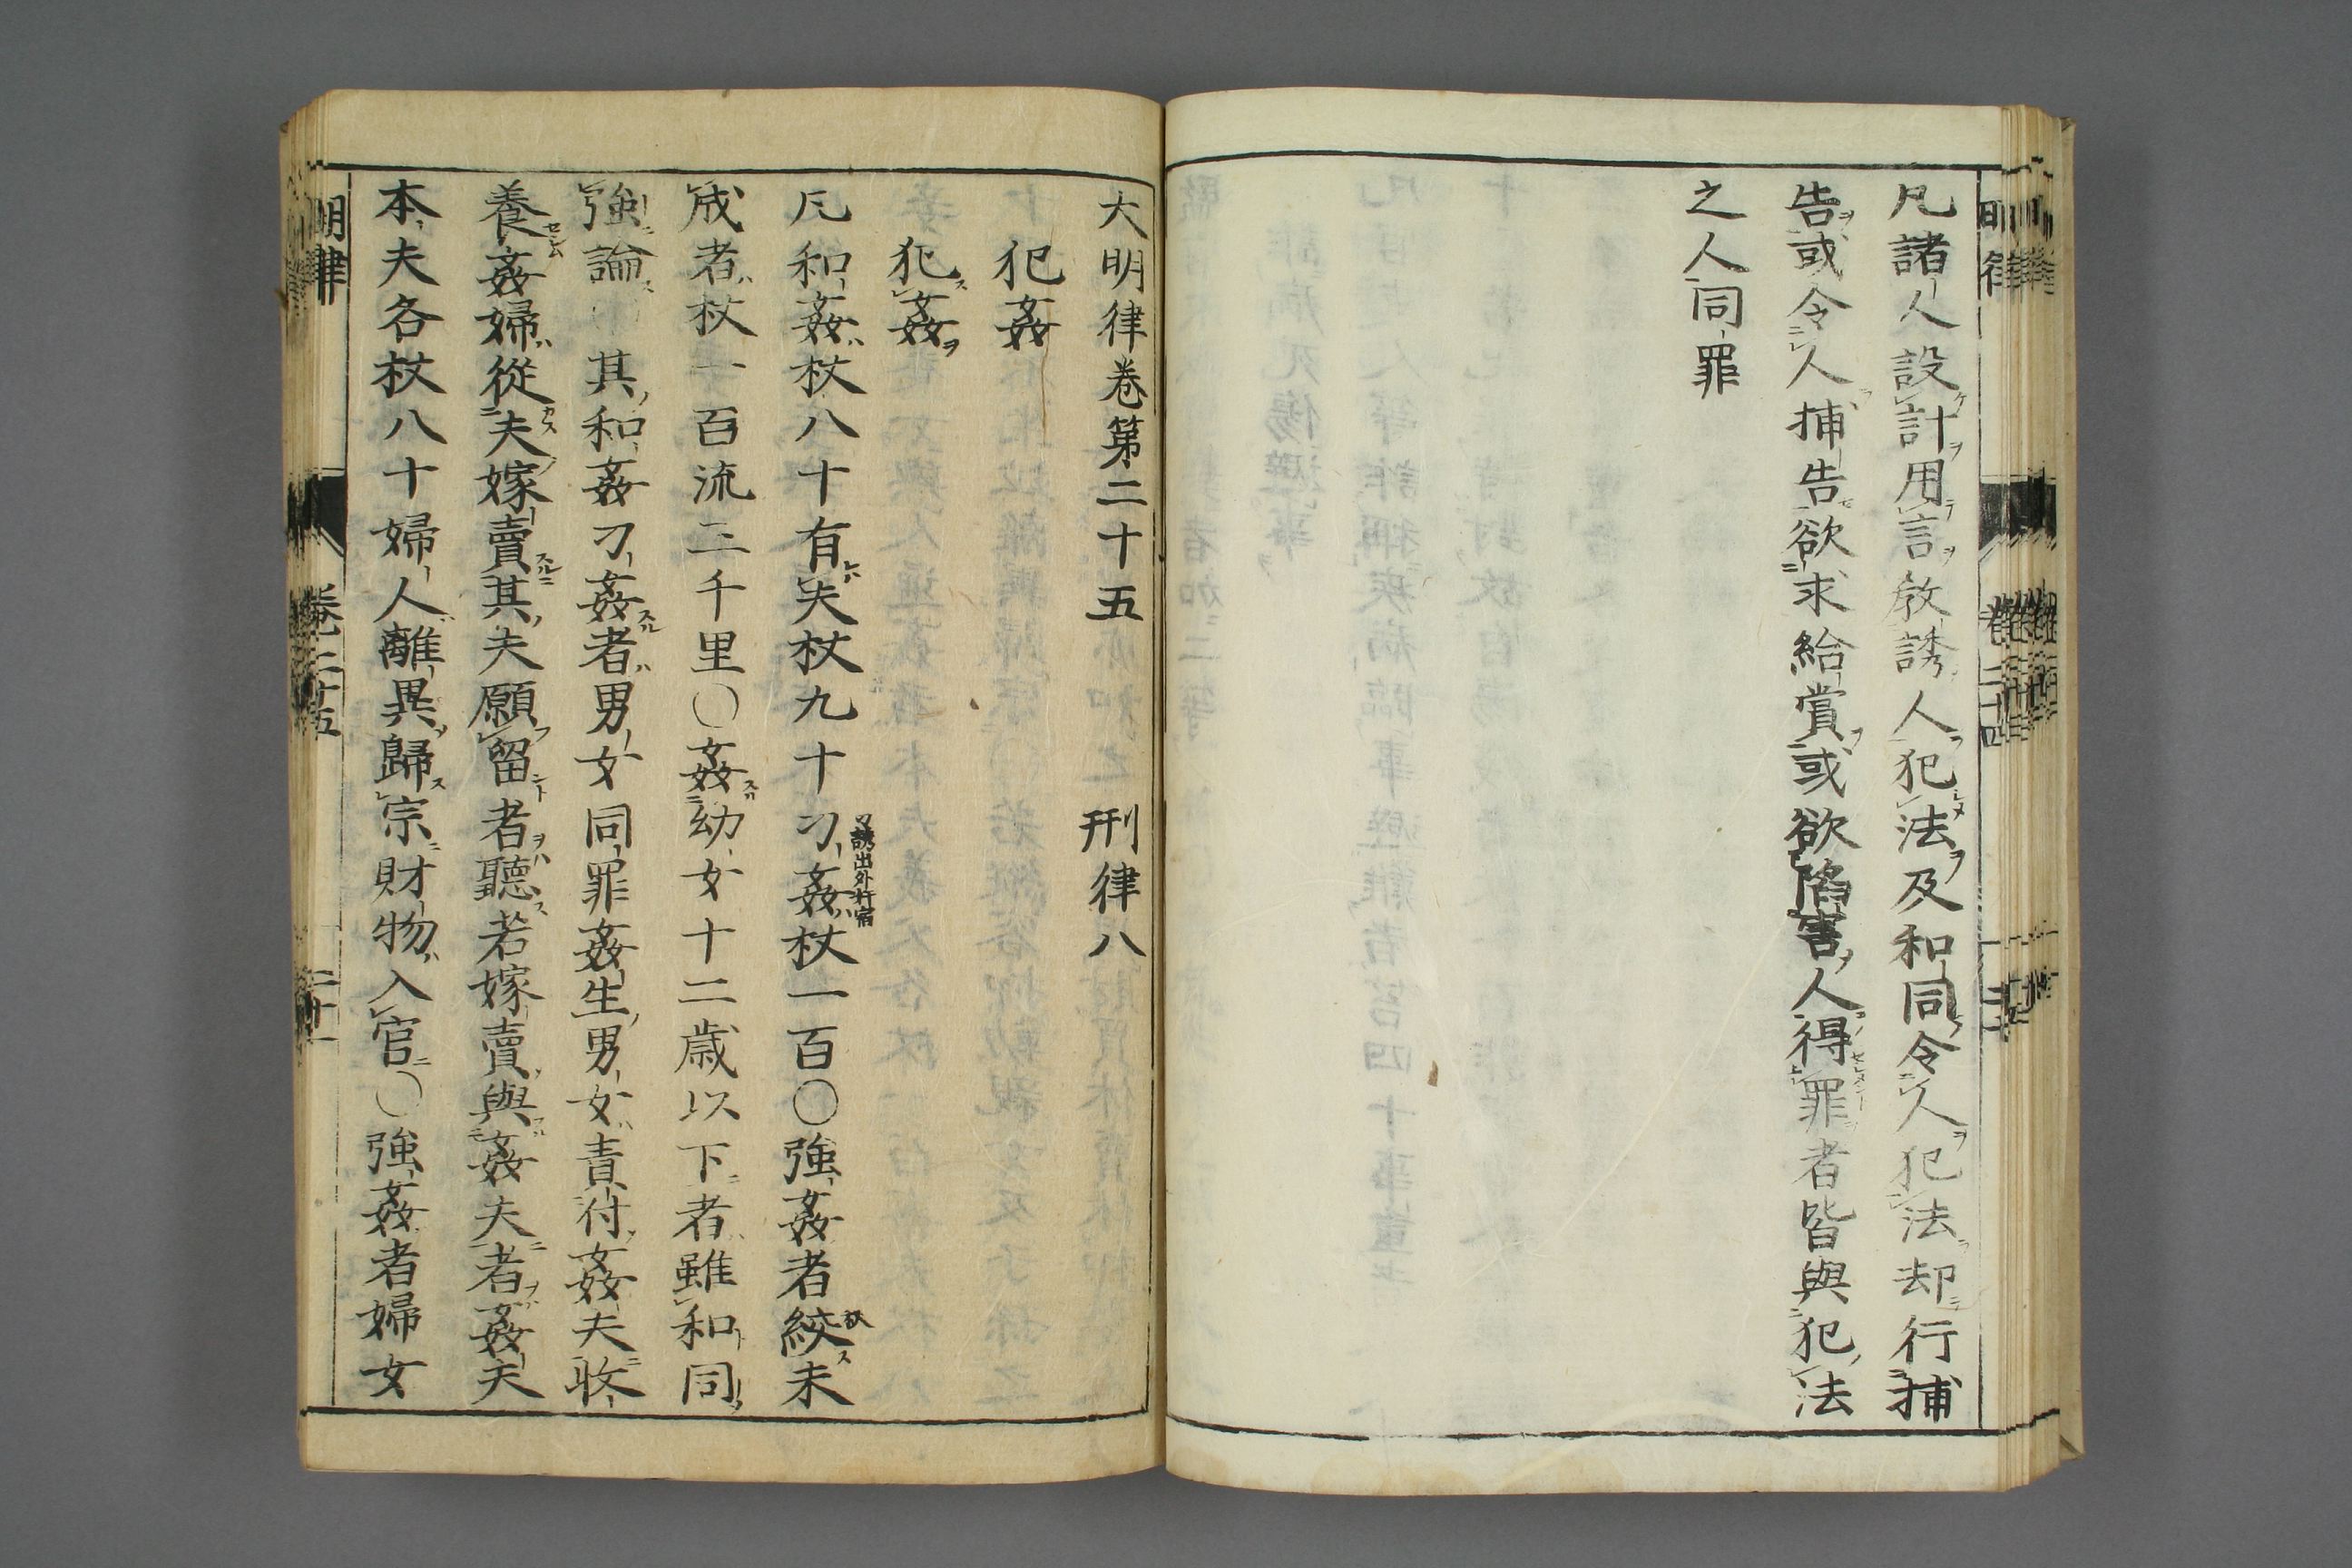 凡諸人設計用言敎誘人犯法及和同令人犯法却行捕
告或令人捕告欲求給賞或欲陷害人得罪者皆與犯法
之人同罪
大明律卷第二十五 刑律八
犯姦
犯姦
凡和姦杖八十有夫杖九十刁姦杖一百○強姦者絞未
又誘出外奸宿
成者杖一百流三千里○姦幼女十二歲以下者雖和同
強論 其和姦刁姦者男女同罪姦生男女責付姦夫收
養姦婦從夫嫁賣其夫願留者聽若嫁賣與姦夫者姦夫
本夫各杖八十婦人離異歸宗財物入官○強姦者婦女
明律 卷二十五
明律 卷二十四